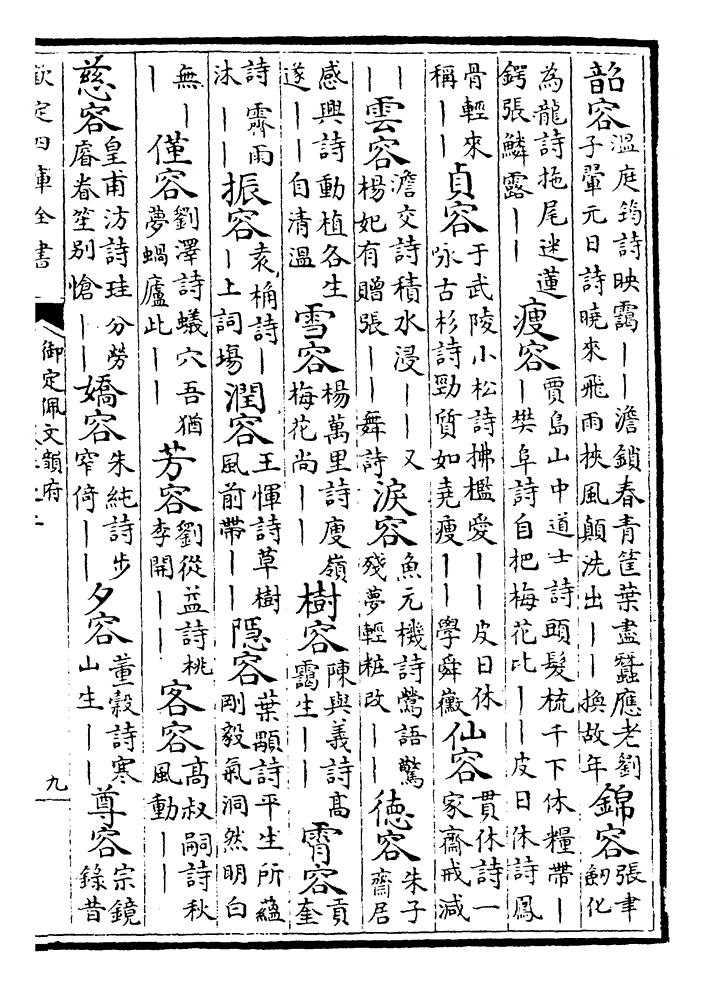 韶容溫庭筠詩映靄||澹鎖春青筐葉盡蠶應老劉子翬元日詩曉來飛雨挾風顛洗出||換故年錦容張聿劒化
為龍詩拖尾迷蓮鍔張鱗露||瘦容賈島山中道士詩頭髮梳千下休糧帶||樊阜詩自把梅花比||皮日休詩鳳
骨輕來稱||貞容于武陵小松詩拂檻愛||皮日休咏古杉詩勁質如堯瘦||學舜黴仙容貫休詩一家齋戒減
||雲容澹交詩積水浸||又楊妃有贈張||舞詩淚容魚元機詩鶯語驚殘夢輕粧改||德容朱子齋居
感興詩動植各生遂||自清溫雪容楊萬里詩庾嶺梅花尚||樹容陳與義詩高靄生||霄容貢奎
詩霽雨沐||振容袁桷詩||上詞場潤容王惲詩草樹風前帶||隱容葉顒詩平生所蘊剛毅氣洞然明白
無||僅容劉澤詩蟻穴吾猶夢蝸廬此||芳容劉從益詩桃李開||客容高叔嗣詩秋風動||
慈容皇甫汸詩珪分勞睿眷笙別愴||嬌容朱純詩步窄倚||夕容董穀詩寒山生||尊容宗鏡錄昔
欽定四庫全書
御定佩文韻府
九